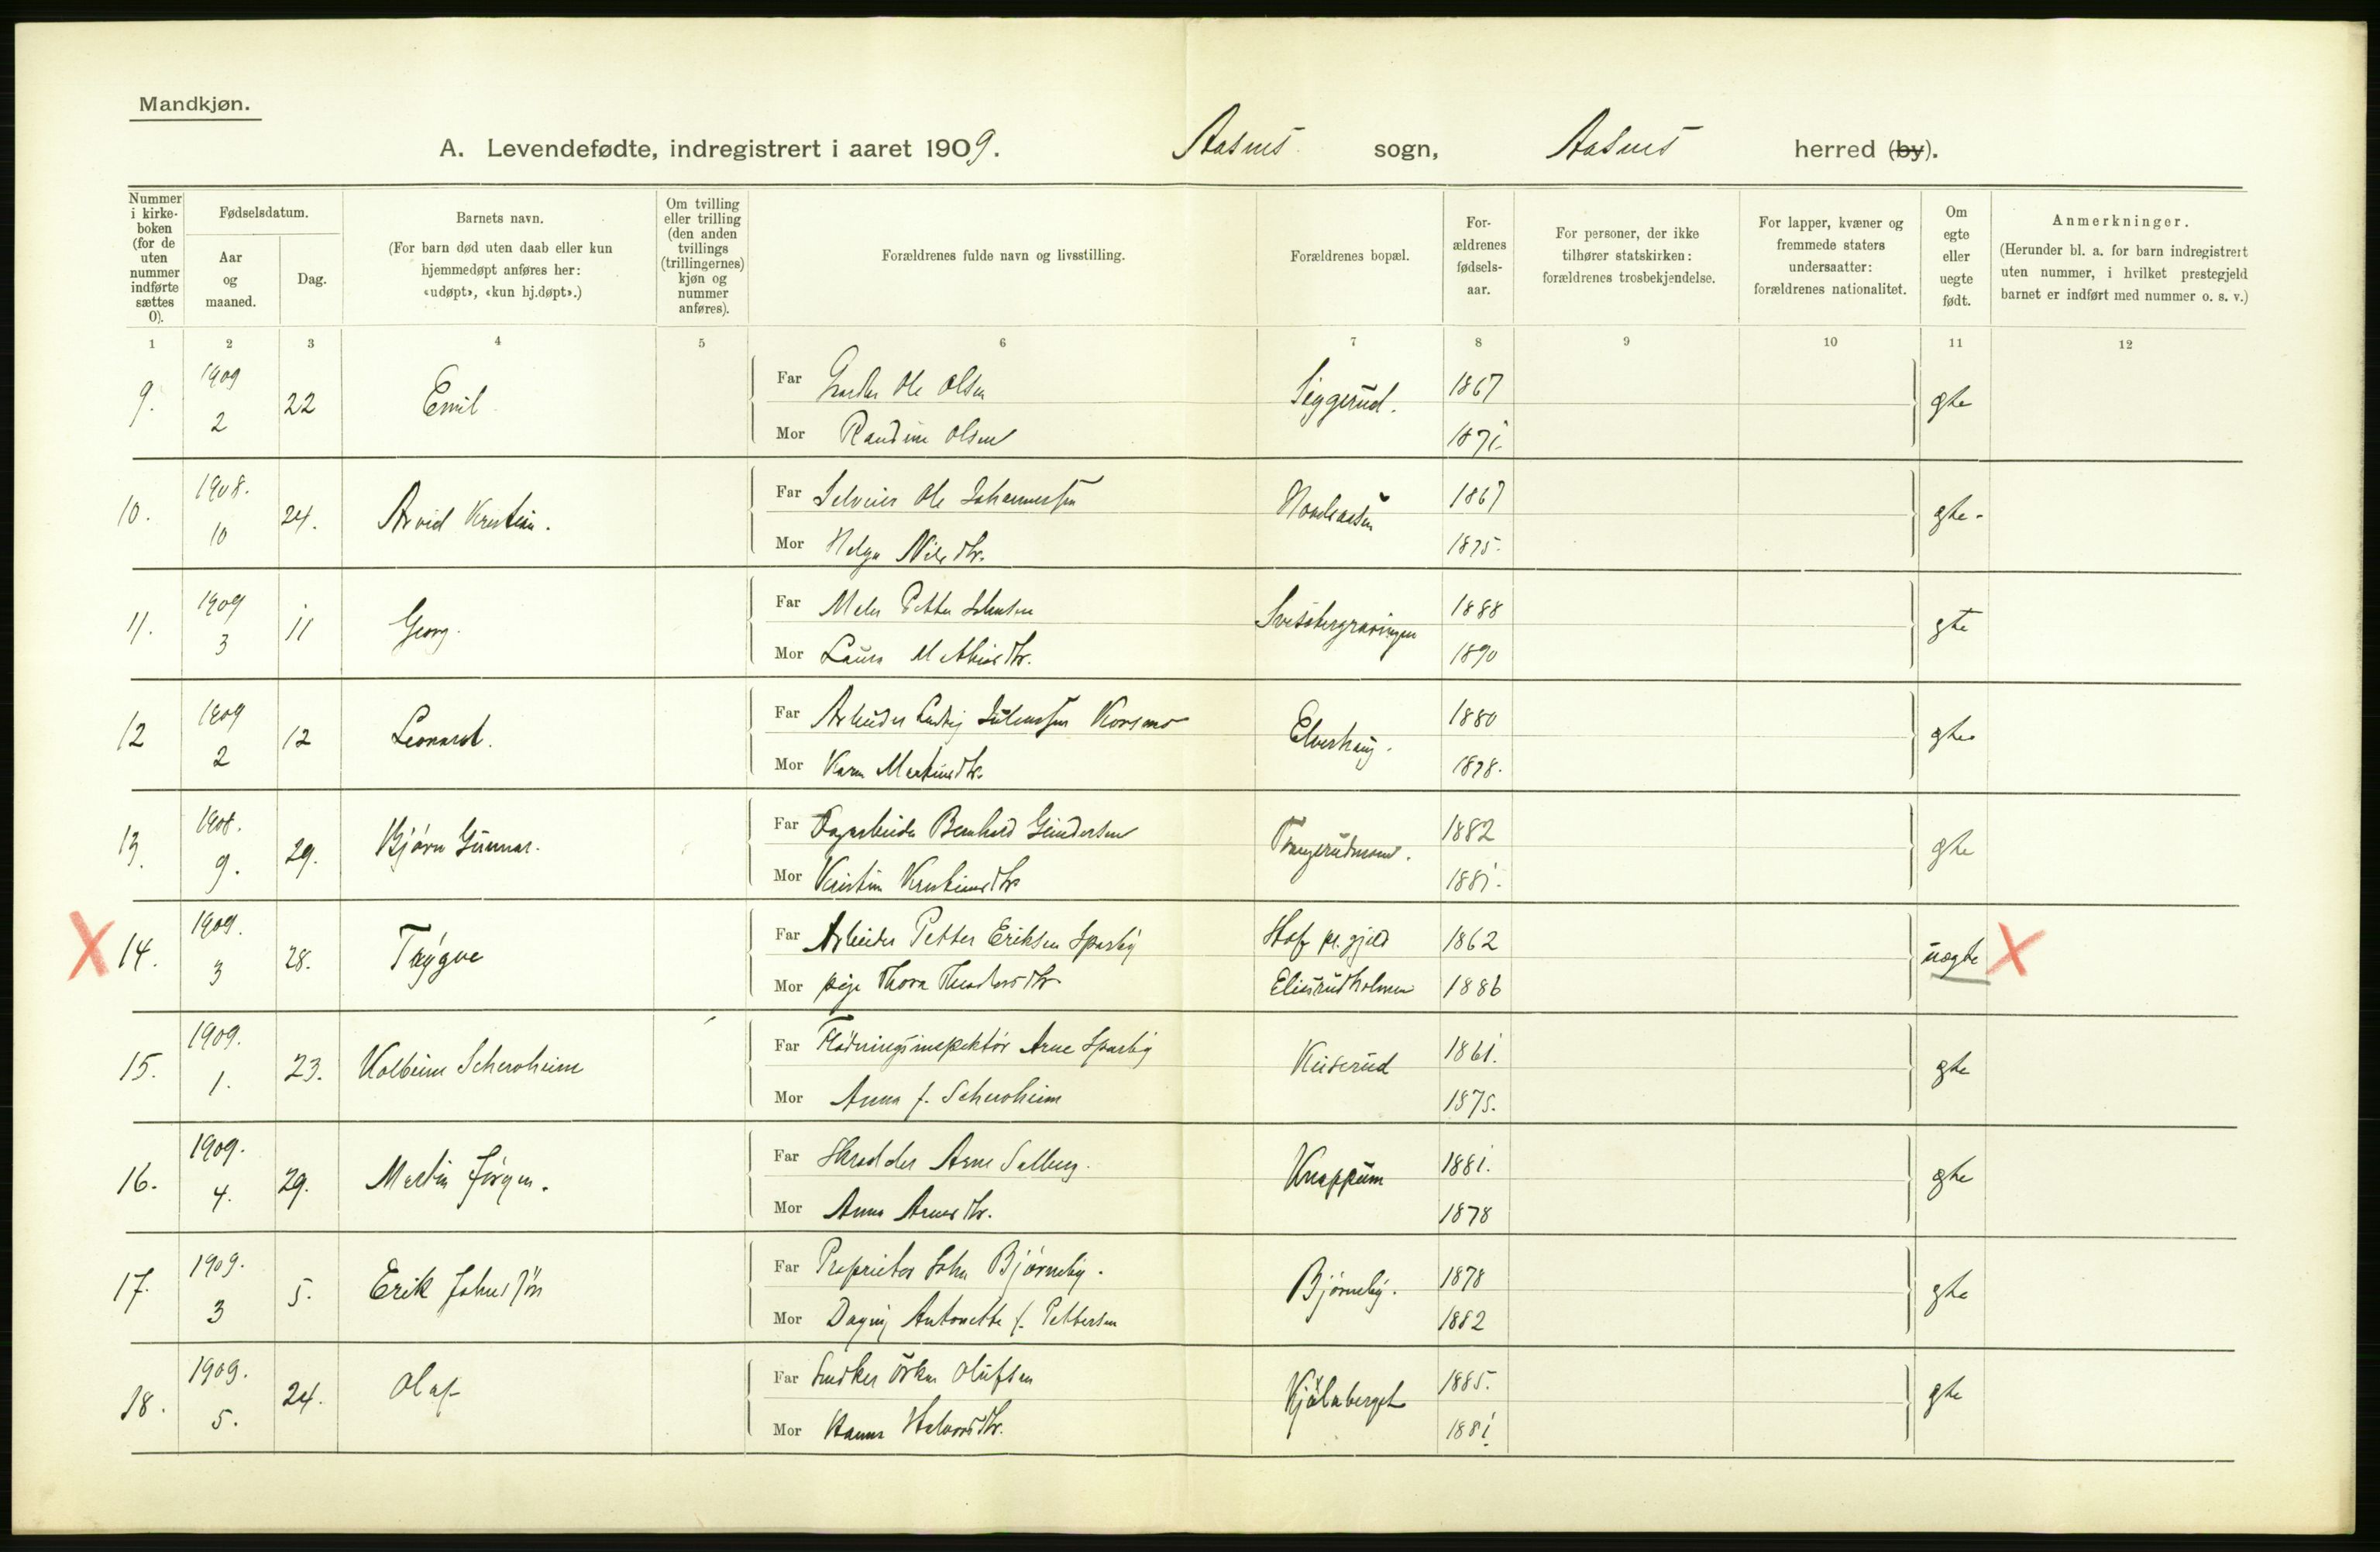 Mandkjøn.
A. Levendefødte, indregistrert i aaret 1909. Aasnes sogn, Aasnes herred (by).
Nummer i kirke-boken (for de uten nummer indførte sættes 0).
Fødselsdatum.
Aar og maaned.
Dag.
Barnets navn.
(For barn død uten daab eller kun hjemmedøpt anføres her: «udøpt», «kun hj.døpt».)
Om tvilling eller trilling (den anden tvillings (trillingernes) kjøn og nummer anføres).
Forældrenes fulde navn og livsstilling.
Forældrenes bopæl.
For-ældrenes fødsels-aar.
For personer, der ikke tilhører statskirken: forældrenes trosbekjendelse.
For lapper, kvæner og fremmede staters undersaatter: forældrenes nationalitet.
Om egte eller uegte født.
Anmerkninger.
(Herunder bl. a. for barn indregistrert uten nummer, i hvilket prestegjeld barnet er indført med nummer o. s. v.)
1 2 3 4 5 6 7 8 9 10 11 12
9. 1909 2 22 Emil
Far Ole Olsen Siggerud. 1867 ægte
Mor Randine Olsen 1871.
10. 1908. 10 24. Arvid Kristian.
Far Selveier Ole Johannessen 1867 ægte.
Mor Helga Nilsdtr. 1875.
11. 1909 3 11 Georg.
Far Petter Johnsen 1888 ægte
Mor Laura Mathisdtr. 1890
12 1909 2 12 Leonard.
Far Arbeider Ludvig Korsmo Elverhaug. 1880 ægte
Mor Karen Martinsdtr. 1878.
13. 1908. 9. 29. Bjørn Gunnar.
Far Bernhard Gundersen 1882 ægte
Mor Kristine Kristiansdtr. 1881.
X 14. 1909. 3 28. Trygve
Far Arbeider Petter Eriksen Sparby Hof pr.gjeld 1862 uægte X
Mor pige Thora Theodorsdtr. 1886
15. 1909. 1. 23. Kolbein Scheroheim
Far Fløtningsinspektør Arne Sparby Keiserud 1861. ægte
Mor Anna f. Scheroheim 1875.
16. 1909. 4. 29. Martin Jørgen.
Far Skrædder Arne Solberg. Knappum 1881. ægte
Mor Anna Arnesdtr. 1878
17. 1909. 3 5. Erik Johnssøn
Far Proprietær John Bjørneby. Bjørneby. 1878 ægte
Mor Dagny Antonette f. Pettersen 1882
18. 1909. 5. 24. Olaf
Far Snedker Oskar Olufsen Kjølaberget 1885. ægte
Mor Hanna Halvorsdtr. 1881